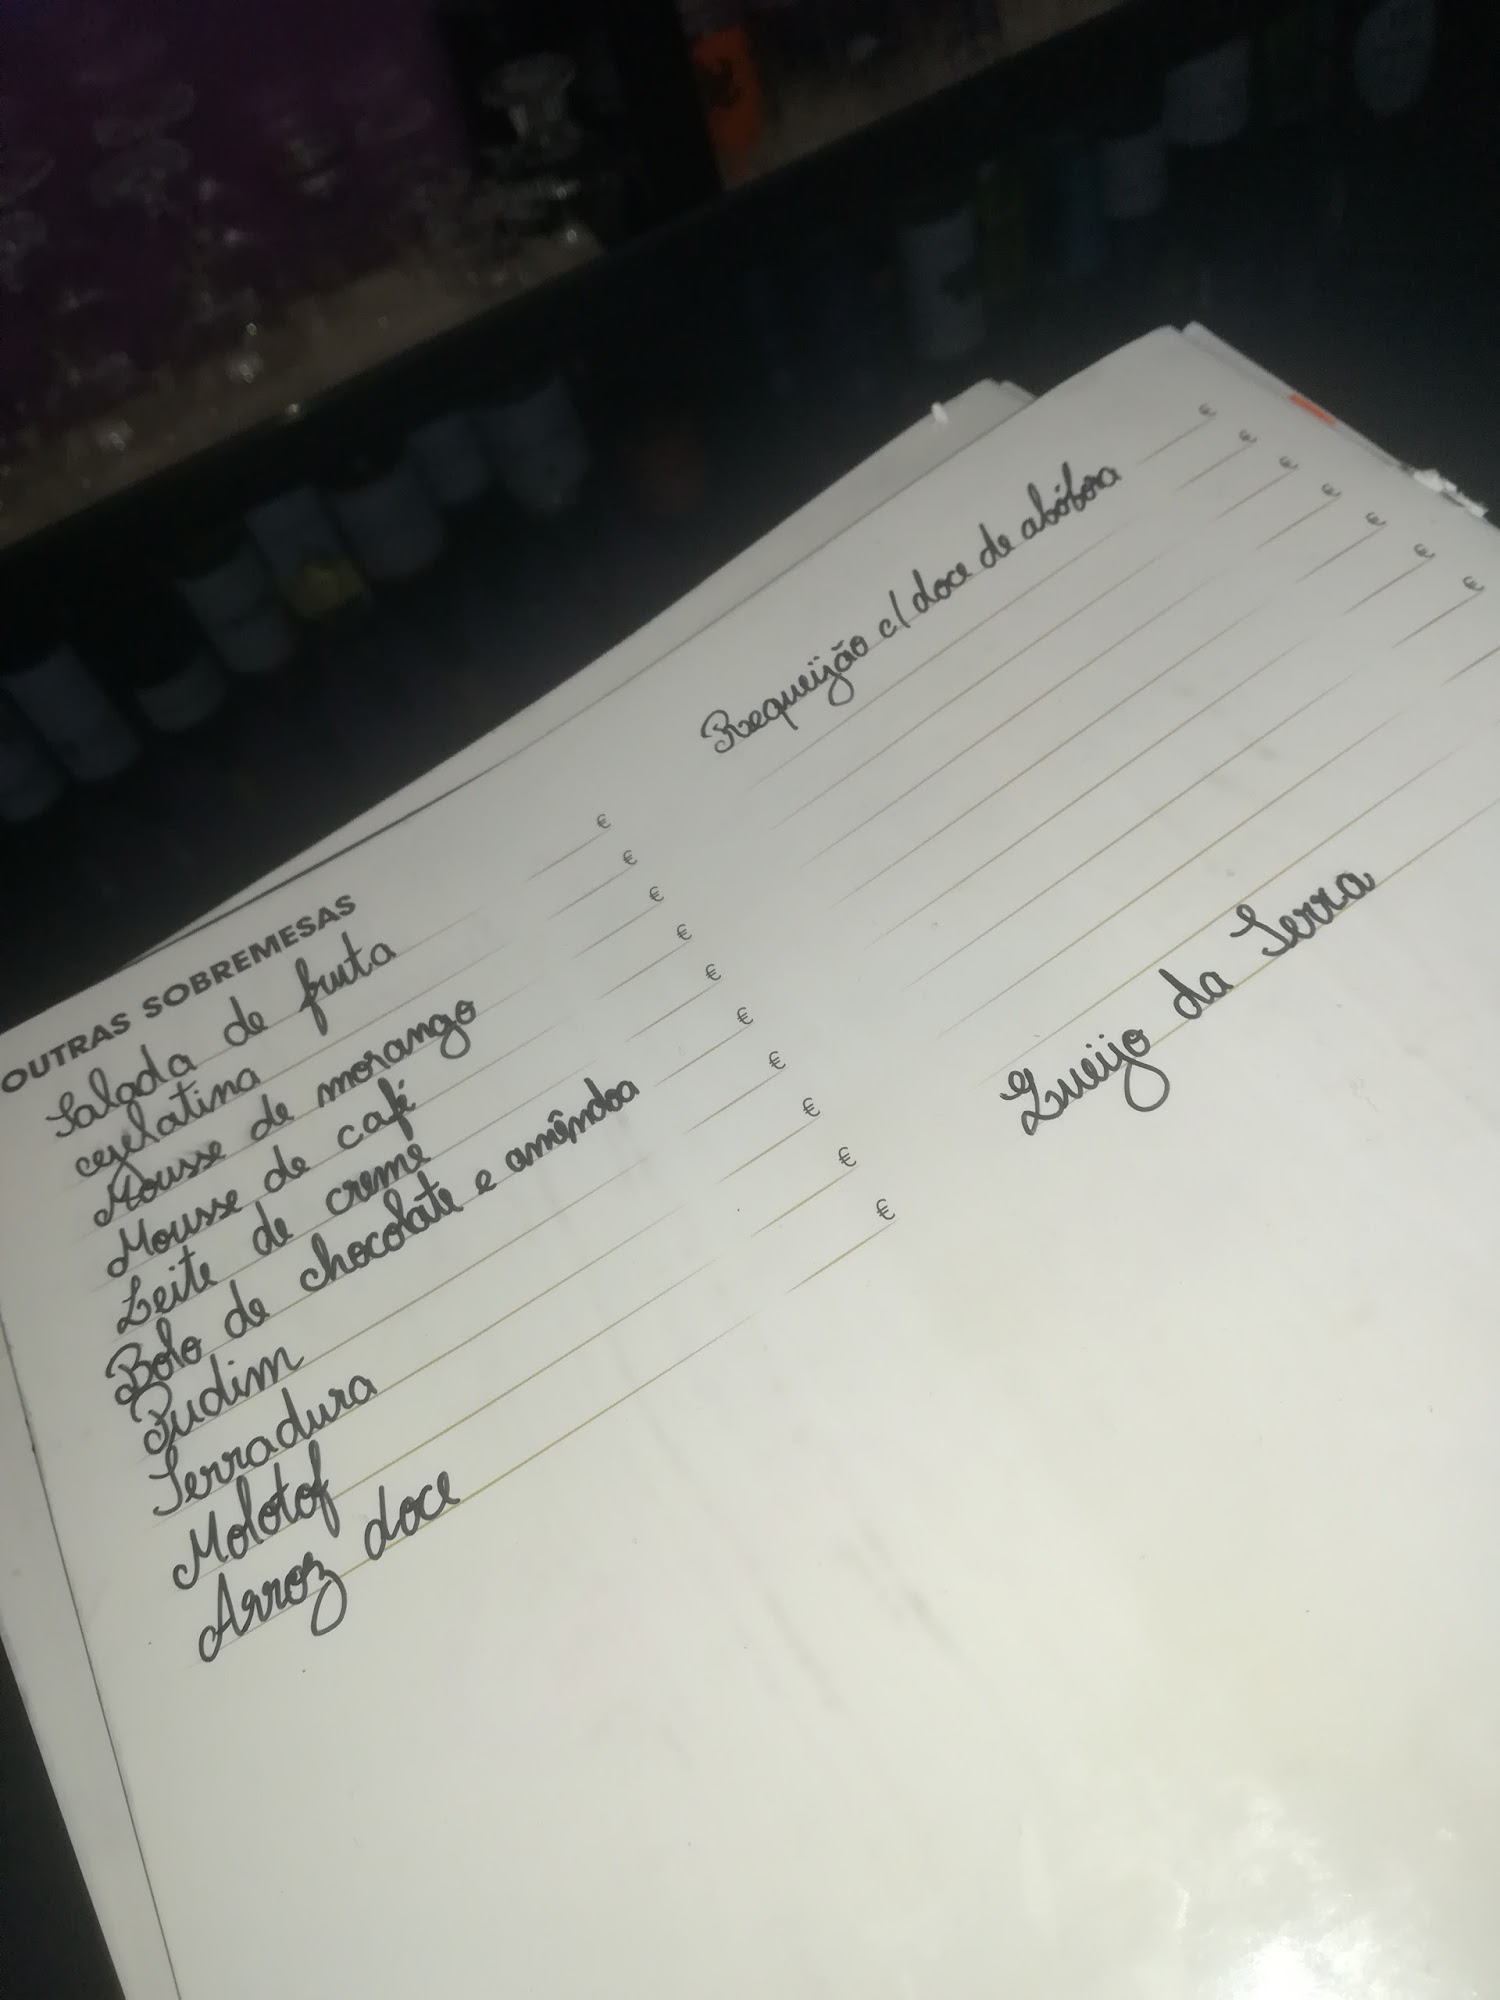 OUTRAS SOBREMESAS
Salada de fruta €
gelatina €
Mousse de morango €
Mousse de café €
Leite de creme €
Bolo de chocolate e amêndoa €
Pudim €
Serradura €
Molotof €
Arroz doce €
Requeijão c/ doce de abóbora €
€
€
€
€
€
€
Queijo da Serra